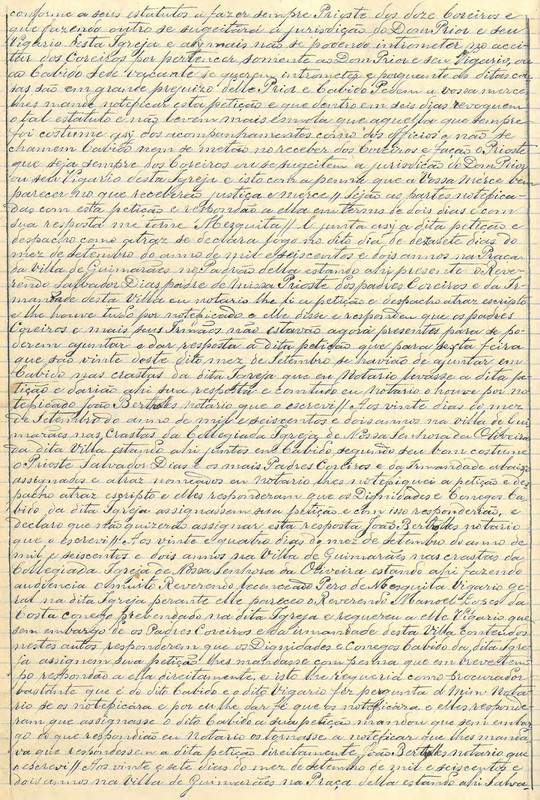 conforme a seus estatutos a fazer sempre Prioste dos doze Coreiros e
que fazendo outro se sugeitará á jurisdição do Dom Prior e seu
Vigario desta Igreja e ahy mais não se podendo intrometer no accei-
tar dos Coreiros por pertencer somente ao Dom Prior e seu Vigario, ou
ao Cabido sede vacante se querem intrometer e porquanto as ditas cou-
sas são em grande prejuizo delle Prior e Cabido Pedem a vossa mercê
lhes mande noteficar esta petição e que dentro em seis dias revoquem
o tal estatuto e não levem mais esmola que aquella que sempre
foi costume assi dos acompanhamentos como dos officios e não se
chamem Cabido nem se metão no receber dos Coreiros e fação Prioste
que seja sempre dos Coreiros ou se sugeitem a jurisdição do Dom Prior
ou seu Vigario desta Igreja e isto com a penna que a Vossa Merce bem
parecer no que receberão justiça e merce // Sejão as partes notefica-
das com esta petição e respondão a ella em termo de dois dias e com
sua resposta me torne Mesquita // E junta assy a dita petição e
despacho como atraz se declara logo no dito dia de desasete dias do
mez de setembro do anno de mil e seiscentos e dois annos na Praça
da Villa de Guimarães no Padrão della estando ahi presente o Reve-
rendo Salvador Dias padre de missa Prioste dos padres Coreiros e da Ir-
mandade desta Villa eu notario lhe li a petição e despacho atraz escripto
e lhe houve tudo por notepicado e elle disse e respondeu que os padres
Coreiros e mais seus Irmãos não estavão agora presentes para se po-
derem ajuntar e dar resposta a dita petição que para sexta feira
que são vinte deste dito mez de Setembro se havião de ajuntar em
Cabido nas crastas da dita Igreja que eu Notario levasse a dita pe-
tição e darião ahi sua resposta e comtudo eu Notario o houve por no-
tepicado João Bertoles notario que o escrevi // Aos vinte dias do mez
de Setembro do anno de mil e seiscentos e dois annos na villa de Gui-
marães nas Crastas da Collegiada Igreja de Nossa Senhora da Oliveira
da dita Villa estando ahi juntos em Cabido segundo seu bom costume
o Prioste Salvador Dias e os mais Padres Coreiros e da Irmandade abaixo
assignados e atraz nomeados eu Notario lhes notepiquei a petição e des-
pacho atraz escripto e elles responderam que os Dignidades e Conegos Ca-
bido da dita Igreja assignassem sua petição e com isso responderão, e
declaro que não quizerão assignar esta resposta João Bertoles notario
que o escrevi // Aos vinte e quatro dias do mez de setembro do anno de
mil e seiscentos e dois annos na Villa de Guimarães nas crastas da
Collegiada Igreja de Nossa Senhora da Oliveira estando ahi fazendo
audiencia o muito Reverendo Lecenceado Pero de Mesquita Vigario ge-
ral na dita Igreja perante elle pareceo o Reverendo Manoel Lopes da
Costa conego prebendado na dita Igreja e requereu a elle Vigario que
sem embargo de os Padres Coreiros e da irmandade desta Villa conteudos
nestes autos responderem que os Dignidades e Conegos Cabido da dita Igre-
ja assignem sua petição lhes mandasse com penna que em breve tem-
po respondão a ella direitamente, e isto lhe requeria como procurador
bastante que é do dito Cabido e o dito Vigario fez pergunta a mim Nota-
rio se os notepicára e por eu lhe dar fé que os notepicára e elles responde-
ram que assignasse o dito Cabido a sua petição mandou que sem embar-
go do que respondião eu Notario os tornasse a noteficar que lhes manda-
va que respondessem a dita petição direitamente João Bertoles notario que
o escrevi // Aos vinte e sete dias do mez de setembro de mil e seiscentos e
dois annos na Villa de Guimarães na Praça della estando ahi Salva-